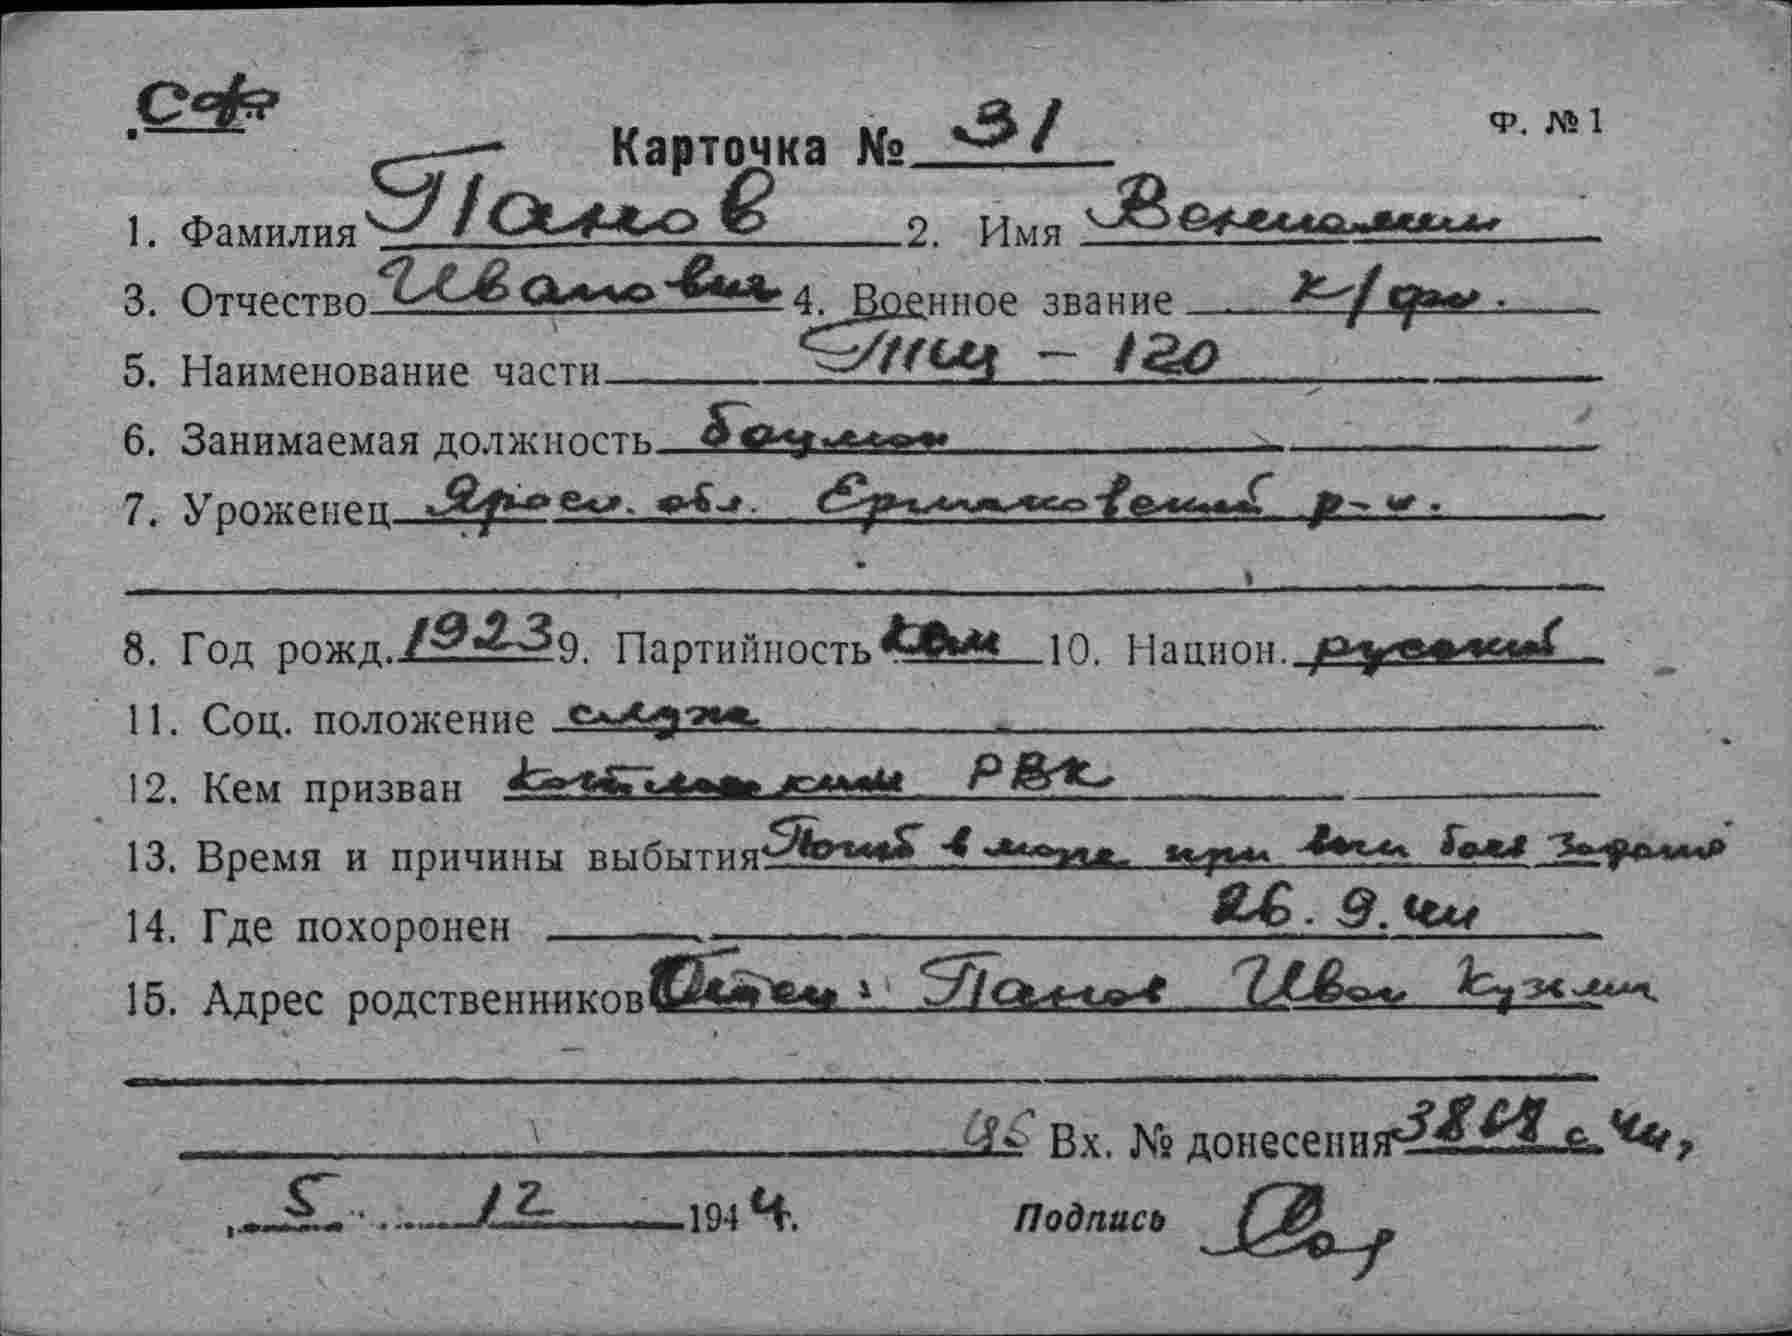 СФ
Карточка № 31
Ф. № 1
1. Фамилия Панов 2. Имя Вениамин
3. Отчество Иванович 4. Военное звание к/фл.
5. Наименование части Тщ - 120
6. Занимаемая должность боцман
7. Уроженец Яросл. обл. Ермаковский р-н.
8. Год рожд. 1923 9. Партийность 10. Национ. русский
11. Соц. положение служ.
12. Кем призван РВК
13. Время и причины выбытия Погиб в море при вып боев задания
26. 9. 44
14. Где похоронен
15. Адрес родственников Отец: Панов Иван Кузьмич
Вх. № донесения с. 44,
5 12 1944.
Подпись